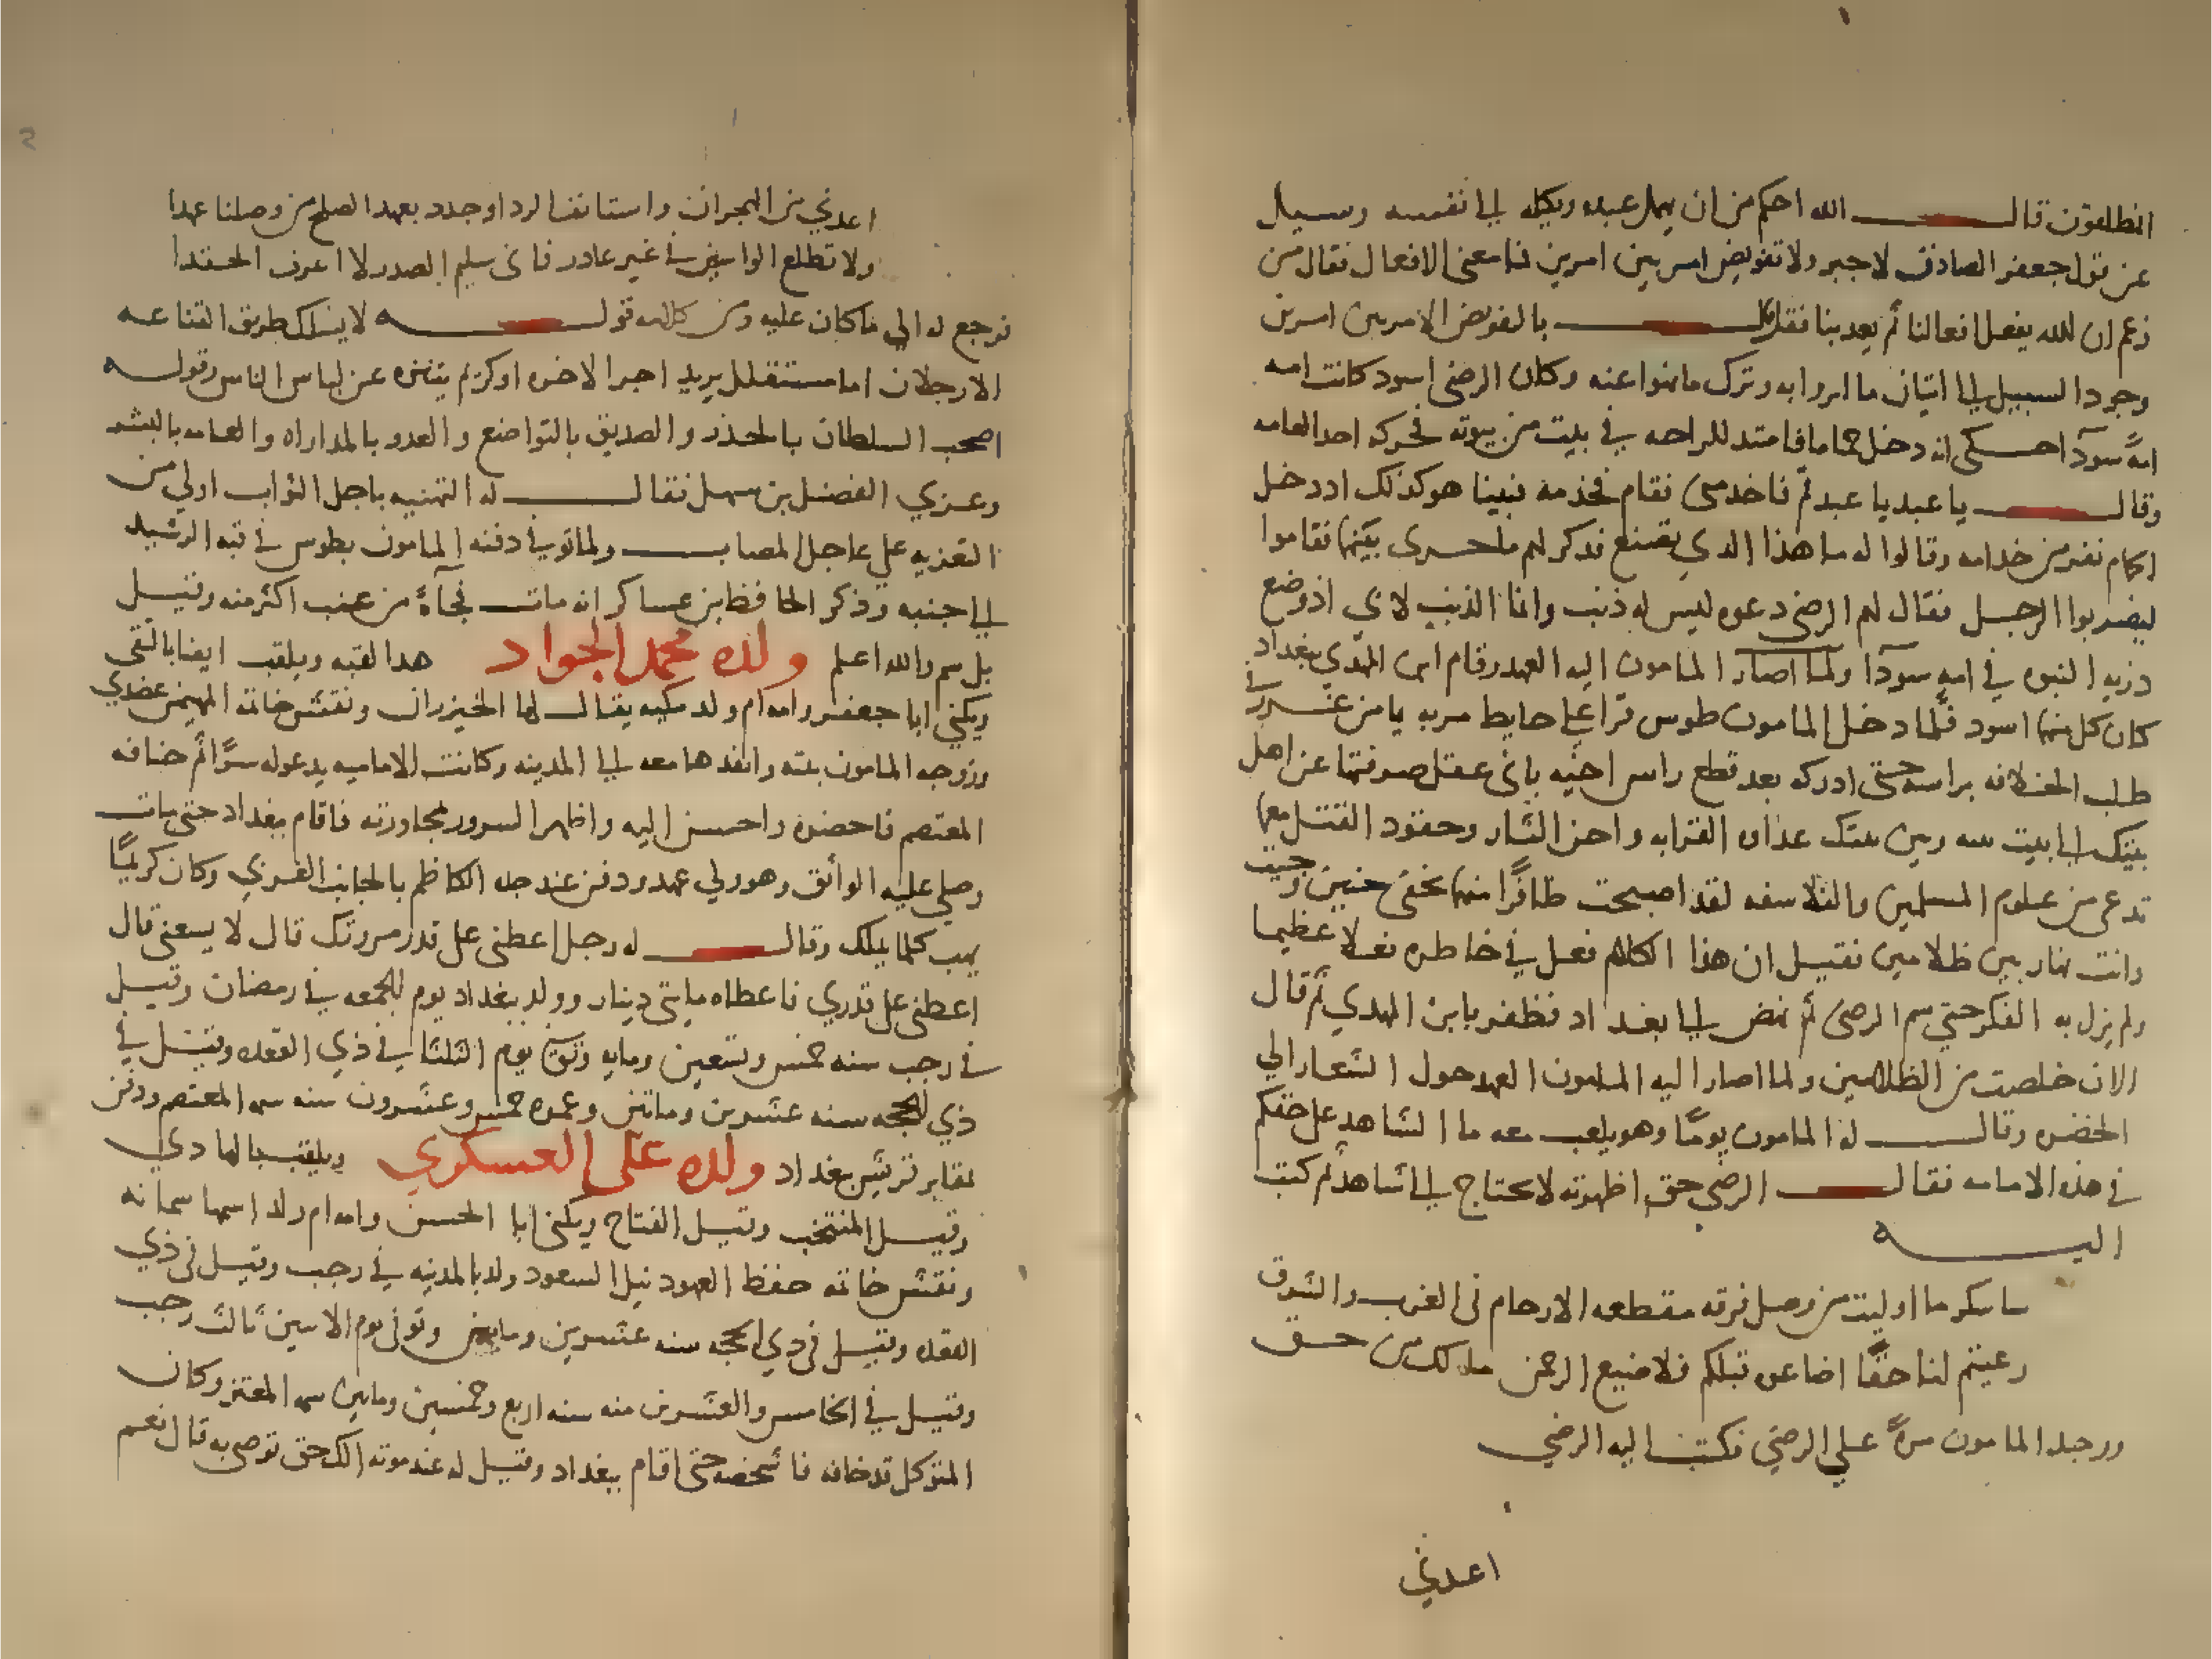 المطلعون قال الله احكم من ان يهمل عبده ويكله الي نفسه وسيل
عن قول جعفر الصادق لا جبر ولا تفويض امر بين امرين فما معنى الافعال فقال من
زعم ان الله يفعل افعالنا ثم يعذبنا فقد بالتفويض الامر بين امرين
وجود السبيل الي اتيان ما امروا به وترك ما نهوا عنه وكان الرضي اسود كانت امه
امة سودآ حكي انه دخل حماما فامتد للراحه في بيت من بيوته فحركه احد العامه
وقال يا عبد يا عبد قم فاخدمني فقام فخدمه فبينا هو كذلك اذ دخل
الحمام نفر من خدامه وقالوا له ما هذا الذي تصنع فذكر لهم ما جري بينهما فقاموا
ليضربوا الرجل فقال لهم الرضي دعوه ليس له ذنب وانما الذنب لابي اذ وضع
ذريه النبوه في امه سودآ ولما اصار المامون اليه العهد وقام ابن المهدي ببغداد
كان كل منهما اسود فلما دخل المامون طوس قرا علي حايط سربه يا من غرر في
طلب الخلافه براسه حتى ادركه بعد قطع راس اخيه باي عقل صرفتها عن اهل
بيتك الي بيت بينه وبين بيتك عداوه القرابه واحن الثار وحقود القتل معما
تدعي من علوم المسلمين والفلاسفه لقد اصبحت ظافرا منهما بخفي حنين وجيت
وانت نهار بين ظلامين فقيل ان هذا الكلام فعل في خاطره فعلا عظيما
ولم يزل به الفكر حتي سم الرضي ثم نهض الي بغداد فظفر بابن المهدي ثم قال
الان خلصت من الظلامين ولما اصار اليه المامون العهد حول الشعار الي
الخضره وقال له المامون يوما وهو يلعب معه ما الشاهد على حقكم
في هذه الامامه فقال الرضي حق اظهرته لا يحتاج الي شاهد ثم كتب
اليه
ساشكر ما اوليت من وصل فرقه مقطعه الارحام في الغرب والشرق
رعيتم لنا حقا اضاعه قبلكم فلا ضيع الرحمن من حق
ووجد المامون مرة علي الرضي فكتب اليه الرضي
اعدني
اعدني من الهجران واستانف الردا وجدد بعهد الصلح من وصلنا عهدا
ولا تطلع الواشين في غير عادر فاني سليم الصدر لا اعرف الحقدا
فرجع له الي ما كان عليه ومن كلامه قوله لا يسلك طريق القناعه
الا رجلان اما متقلل يريد اجر الاخره او كريم يتنزه عن لباس الناس وقوله
اصحب السلطان بالحذر والصديق بالتواضع والعدو بالمداراه والعامه بالبشر
وعزي الفضل بن سهل فقال له التهنيه باجل الثواب اولي من
التعزيه علي عاجل المصاب ولما توفي دفنه المامون بطوس في قبه الرشيد
الي جنبه وذكر الحافظ بن عساكر انه مات فجآة من عنب اكثر منه وقيل
بل سم والله اعلم ولده محمد الجواد هذا لقبه ويلقب ايضا بالتقي
ويكني ابا جعفر وامه ام ولد مكيه يقال لها الخيزران ونقش خاتمه المهيمن عضدي
وزوجه المامون بنته وانفذها معه الي المدينه وكانت الاماميه يدعوا له سرا ثم خافه
المعتصم فاحضره واحسن اليه واظهر السرور بمجاورته فاقام ببغداد حتى مات
وصلي عليه الواثق وهو ولي عهد ودفن عند جده الكاظم بالجانب الغربي وكان كريما
يهب كلما يملك وقال له رجل اعطني على قدر مروتك قال لا يسعني قال
اعطني على قدري فاعطاه مايتي دينار وولد ببغداد يوم الجمعه في رمضان وقيل
في رجب سنه خمس وتسعين ومايه وتوفي يوم الثلثا في ذي القعده وقيل في
ذي الحجه سنه عشرين وماتين وعمره خمس وعشرون سنه سمه المعتصم ودفن
بمقابر قريش ببغداد ولده على العسكري ويلقب بالهادي
وقيل المنتجب وقيل الفتاح ويكنى ابا الحسن وامه ام ولد اسمها سمانه
ونقش خاتمه حفظ العهود نيل السعود ولد بالمدينه في رجب وقيل في ذي
القعده وقيل في ذي الحجه سنه عشرين ومايتين وتوفي يوم الاثنين ثالث رجب
وقيل في الخامس والعشرين منه سنه اربع وخمسين ومايتين سمه المعتز وكان
المتوكل قد خافه فاشخصه حتى اقام ببغداد وقيل له عند موته الك حق توصي به قال نعم